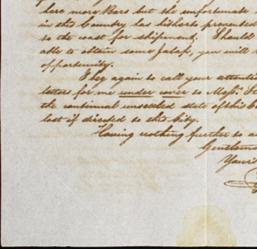 here more Bars but the unfortunate
in this Country has hitherto prevented
to the coast for shipment. Should
able to obtain some Jalap, you will
opportunity.
I beg again to call your attention
letters for me under cover to Messrs
the continual unsettled state of this
lost if directed to this City.
Having nothing further to
Gentlemen
Your